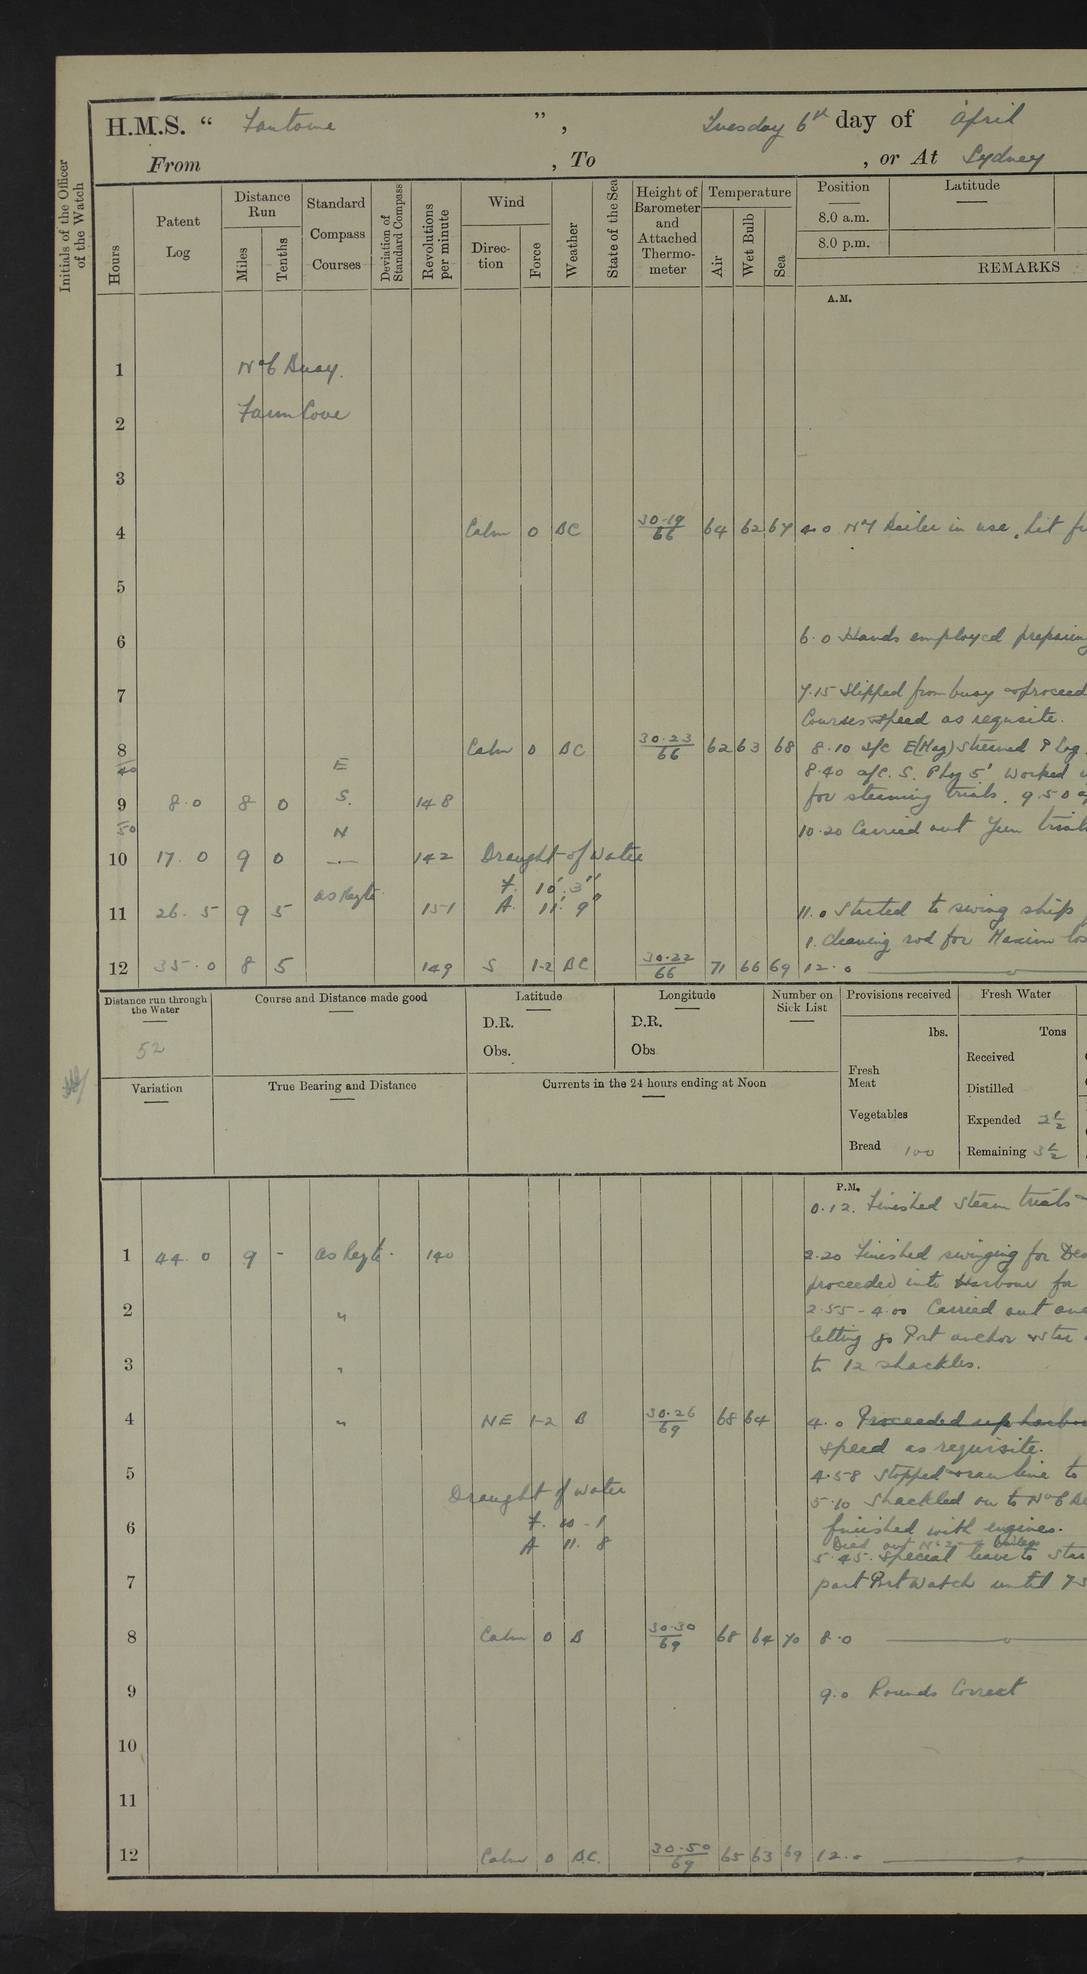 H.M.S. " Fantome ", Tuesday 6th day of April
From , To , or At Sydney
Initials of the Officer of the Watch
Hours
Patent Log
Distance Run
Miles
Tenths
Standard Compass Courses
Deviation of Standard Compass
Revolutions per minute
Wind
Direction
Force
Weather
State of the Sea
Height of Barometer and Attached Thermometer
Temperature
Air
Wet Bulb
Sea
Position
8.0 a.m.
8.0 p.m.
Latitude
REMARKS
A.M.
1 No 6 Buoy.
2 Farm Cove
3
4 Calm 0 BC 30.19 66 64 62 67 4.0 No 1 Boiler in use, Lit
5
6 6.0 Hands employed preparing
7 7.15 Slipped from buoy & proceed
Courses & speed as requisite.
8 Calm 0 BC 30.23 66 62 63 68 8.10 a/c E(Mag) Streamed P Log
40 E 8.40 a/c. S. P log 5' Worked
9 8.0 8 0 S. 148 for steaming trials. 9.50
50 N 10.20 Carried out Gun trials
10 17.0 9 0 142 Draught of Water
F. 10'.3"
as Reqte.
A. 11'. 9"
11 26.5 9 5 151 11.0 Started to swing ship
1. Cleaning rod for Maxim
12 35.0 8 5 149 S 1-2 BC 30.22 66 71 66 69 12.0
Distance run through the Water
52
Course and Distance made good
Latitude
D.R.
Obs.
Longitude
D.R.
Obs
Number on Sick List
Provisions received
lbs.
Fresh Meat
Vegetables
Bread 100
Fresh Water
Tons
Received
Distilled
Expended 2½
Remaining 3½
Variation
True Bearing and Distance
Currents in the 24 hours ending at Noon
P.M.
0.12. Finished Steam trials
1 44.0 9 - as Reqte. 140 2.20 Finished swinging for
proceeded into Harbour for
2 " 2.55 - 4.00 Carried out
letting go Port anchor
3 " to 12 shackles.
4 " NE 1-2 B 30.26 69 68 64 4.0 Proceeded up harbour
speed as requisite.
5 4.58 Stopped & ran line to
Draught of Water
5.10 Shackled on to No 6
6 F. 10 - 1 finished with engines.
A 11. 8
5.45. Special leave to
7 part Port Watch until
8 Calm 0 B 30.30 69 68 64 70 8.0
9 9.0 Rounds Correct
10
11
12 Calm 0 B.C. 30.50 69 65 63 69 12.0